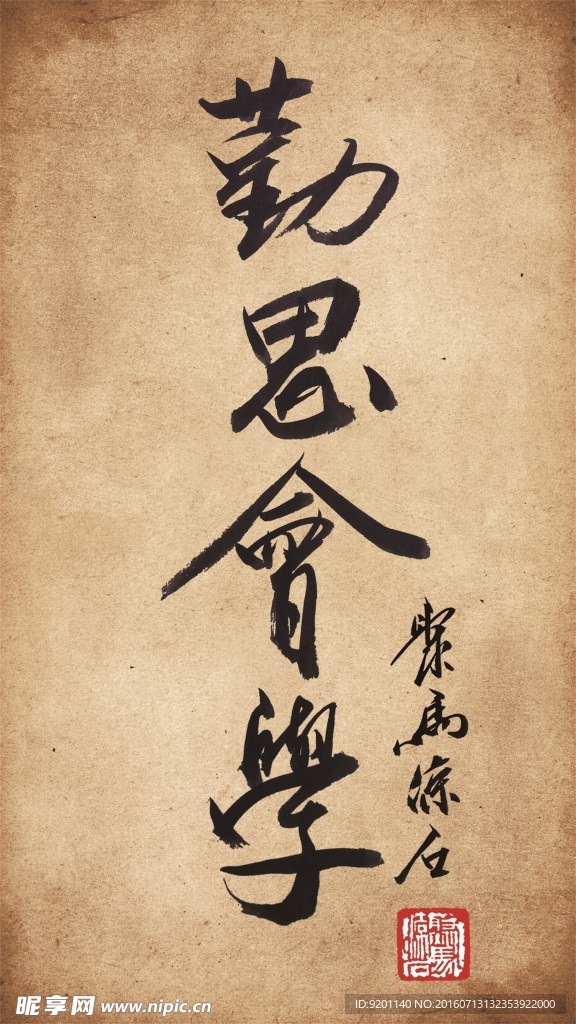 勤思會學
聚馬涼石
昵享网 www.nipic.cn
ID:9201140 NO:20160713132353922000